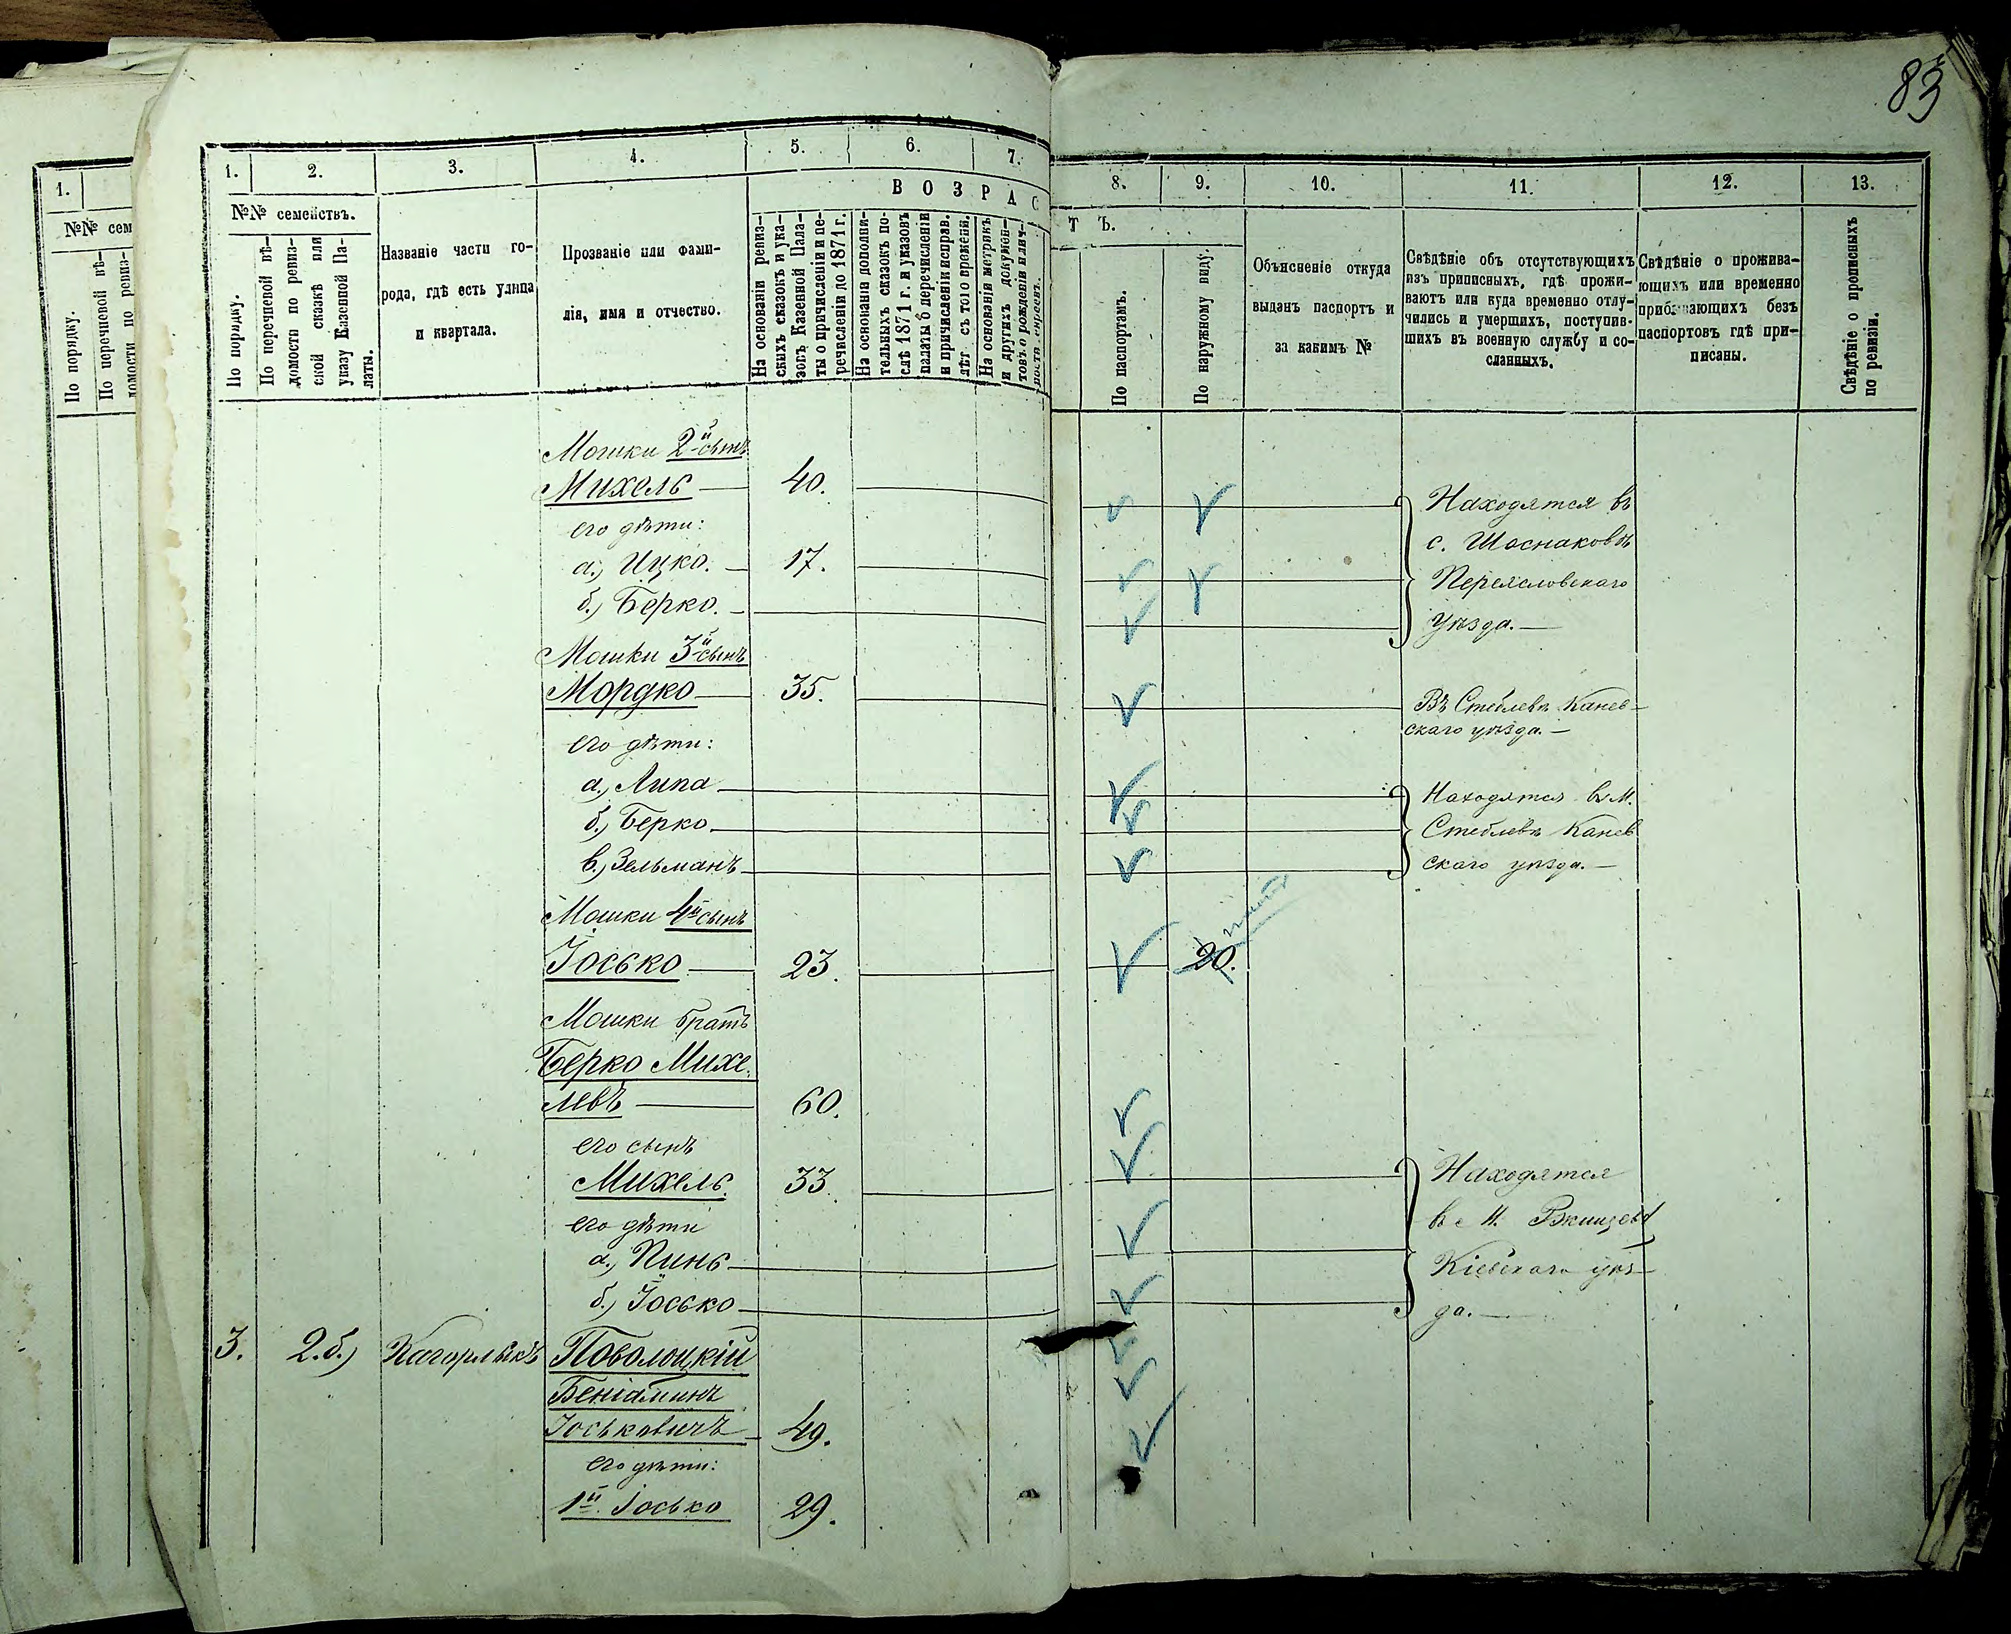 83
1.
2.
3.
4.
5.
6.
7.
8.
9.
10.
11.
12.
13.
1.
№№ сем
По порядку.
По перечневой вѣ-
домости по ревиз-
№№ семействъ.
По порядку.
По перечневой вѣ-
домости по ревиз-
ской сказкѣ или
указу Казенной Па-
латы.
Названіе части го-
рода, гдѣ есть улица
и квартала.
Прозваніе или фами-
лія, имя и отчество.
ВОЗРАС
ТЪ.
На основаніи ревиз-
скихъ сказокъ и ука-
зовъ Казенной Пала-
ты о причисленіи и пе-
речисленіи до 1871 г.
На основаніи дополни-
тельныхъ сказокъ по-
слѣ 1871 г. и указовъ
палаты о перечисленіи
и причисленіи исправ.
лѣт. съ того времени.
На основаніи метрикъ
и другихъ докумен-
товъ о рожденіи или
По паспортамъ.
По наружному виду.
Объясненіе откуда
выданъ паспортъ и
за какимъ №
Свѣдѣніе объ отсутствующихъ
изъ приписныхъ, гдѣ прожи-
ваютъ или куда временно отлу-
чились и умершихъ, поступив-
шихъ въ военную службу и со-
сланныхъ.
Свѣдѣніе о прожива-
ющихъ или временно
прибывающихъ безъ
паспортовъ гдѣ при-
писаны.
Свѣдѣніе о прописныхъ
по ревизіи.
Мошки 2й сынъ
Михель 40.
его дѣти:
а.) Ицко. 17.
б.) Берко.
Находятся въ
с.
Переясловскаго
Уѣзда.
Мошки 3й сынъ
Мордко 35.
Въ Стеблевѣ Канев-
скаго уѣзда.
его дѣти:
а.) Липа
б.) Берко
в.) Зельманъ
Находятся въ М.
Стеблевѣ Канев
скаго уѣзда.
Мошки 4й сынъ
Іосько 23. 20.
Мошки братъ
Берко Михе-
левъ 60.
его сынъ
Михель. 33.
его дѣти
а.) Пинь
б.) Іосько
Находятся
въ М.
Кіевскаго уѣз-
да.
3. 2.б.) Кагорлыкъ Поволоцкій
Беніаминъ
Іоськовичъ 49.
его дѣти:
1й. Іосько 29.